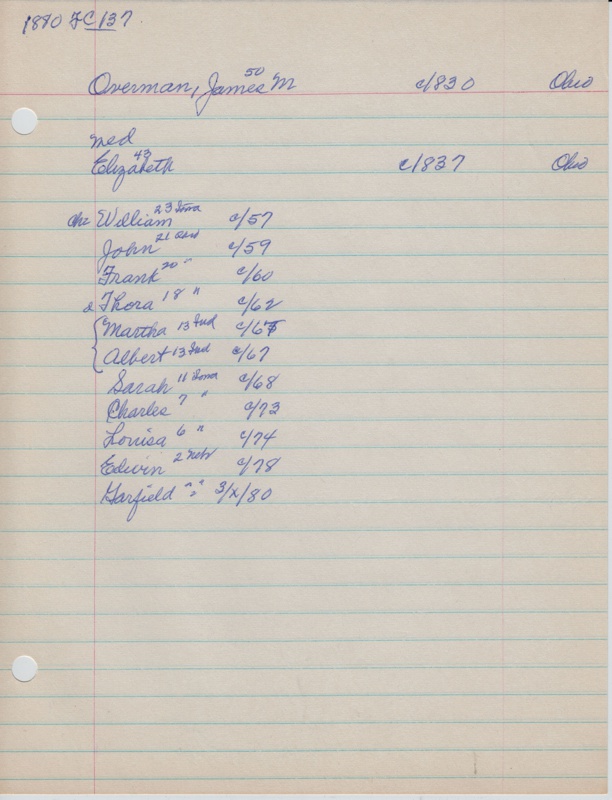 1880 FC 137
Overman, James M 50 c/1830 Ohio
med
Elizabeth 43 c/1837 Ohio
chr William 23 Iowa c/57
John 21 Ohio c/59
Frank 20 " c/60
d Thora 18 " c/62
Martha 13 Ind c/67
Albert 13 Ind c/67
Sarah 11 Iowa c/68
Charles 7 " c/73
Louisa 6 " c/74
Edwin 2 Nebr c/78
Garfield 3/X/80